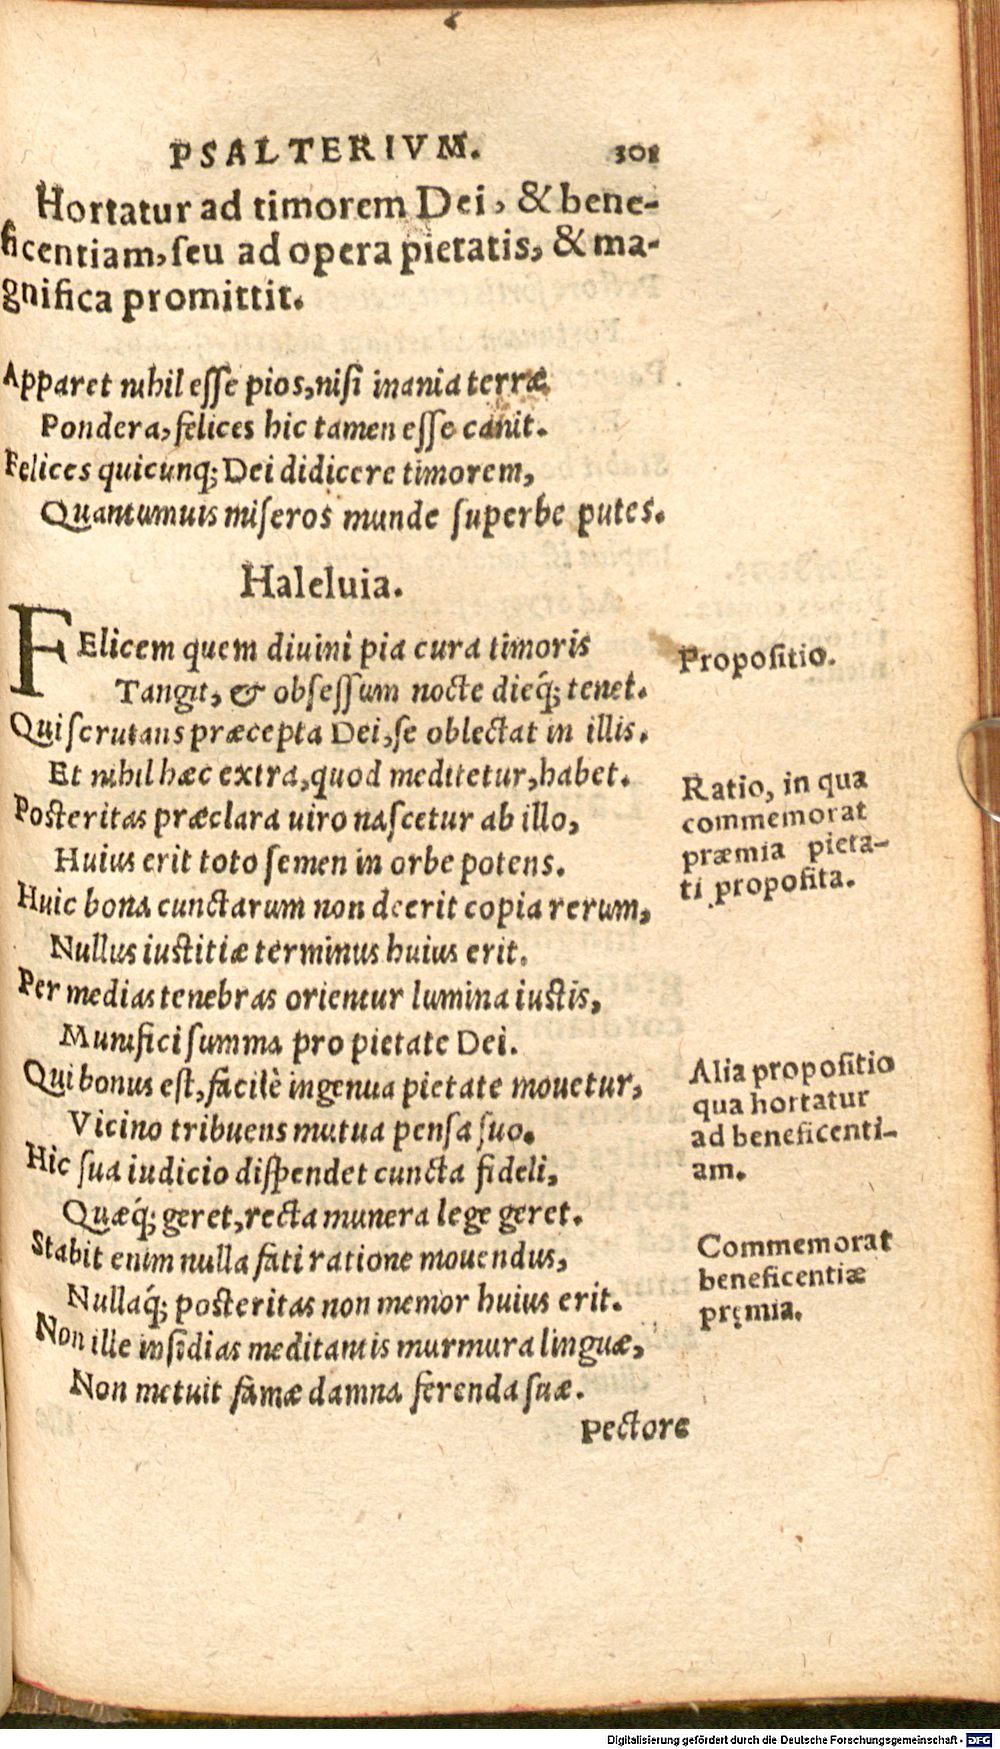 PSALTERIVM. 301
Hortatur ad timorem Dei, & bene-
ficentiam, seu ad opera pietatis, & ma-
gnifica promittit.
Apparet nihil esse pios, nisi inania terræ
Pondera, felices hic tamen esse canit.
Felices quicunq; Dei didicere timorem,
Quantumuis miseros munde superbe putes.
Haleluia.
FElicem quem diuini pia cura timoris
Tangit, & obsessum nocte dieq́; tenet.
Propositio.
Qui scrutans præcepta Dei, se oblectat in illis.
Et nihil hæc extra, quod meditetur, habet.
Posteritas præclara uiro nascetur ab illo,
Huius erit toto semen in orbe potens.
Ratio, in qua
commemorat
præmia pieta-
ti proposita.
Huic bona cunctarum non deerit copia rerum,
Nullus iustitiæ terminus huius erit.
Per medias tenebras orientur lumina iustis,
Munifici summa pro pietate Dei.
Qui bonus est, facilè ingenua pietate mouetur,
Vicino tribuens mutua pensa suo.
Alia propositio
qua hortatur
ad beneficenti-
am.
Hic sua iudicio dispendet cuncta fideli,
Quæq́; geret, recta munera lege geret.
Stabit enim nulla fati ratione mouendus,
Nullaq́; posteritas non memor huius erit.
Commemorat
beneficentiæ
pręmia.
Non ille insidias meditantis murmura linguæ,
Non metuit famæ damna ferenda suæ.
Pectore
Digitalisierung gefördert durch die Deutsche Forschungsgemeinschaft - DFG